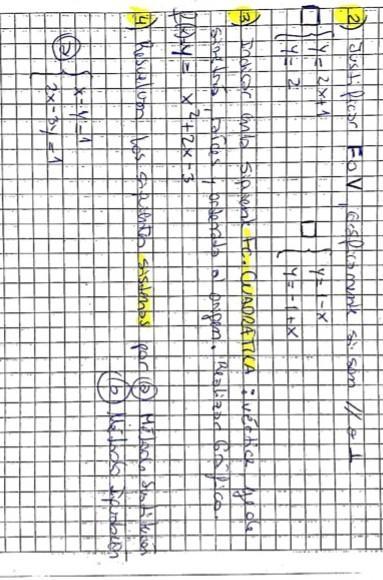 2) Justificar F o V, gráficamente si son // o ⊥
□ { y = 2x+1
y = 2
□ { y = 1-x
y = -1+x
3) Indicar en la siguiente Fc. CUADRÁTICA: vértice, eje de
simetría, raíces, ordenada al origen. Realizar Gráfico.
f(x)=y = x²+2x-3
4) Resuelvan los siguientes sistemas por a) Método Sustitución
b) Método Igualación
a) { x-y=1
2x-3y=1